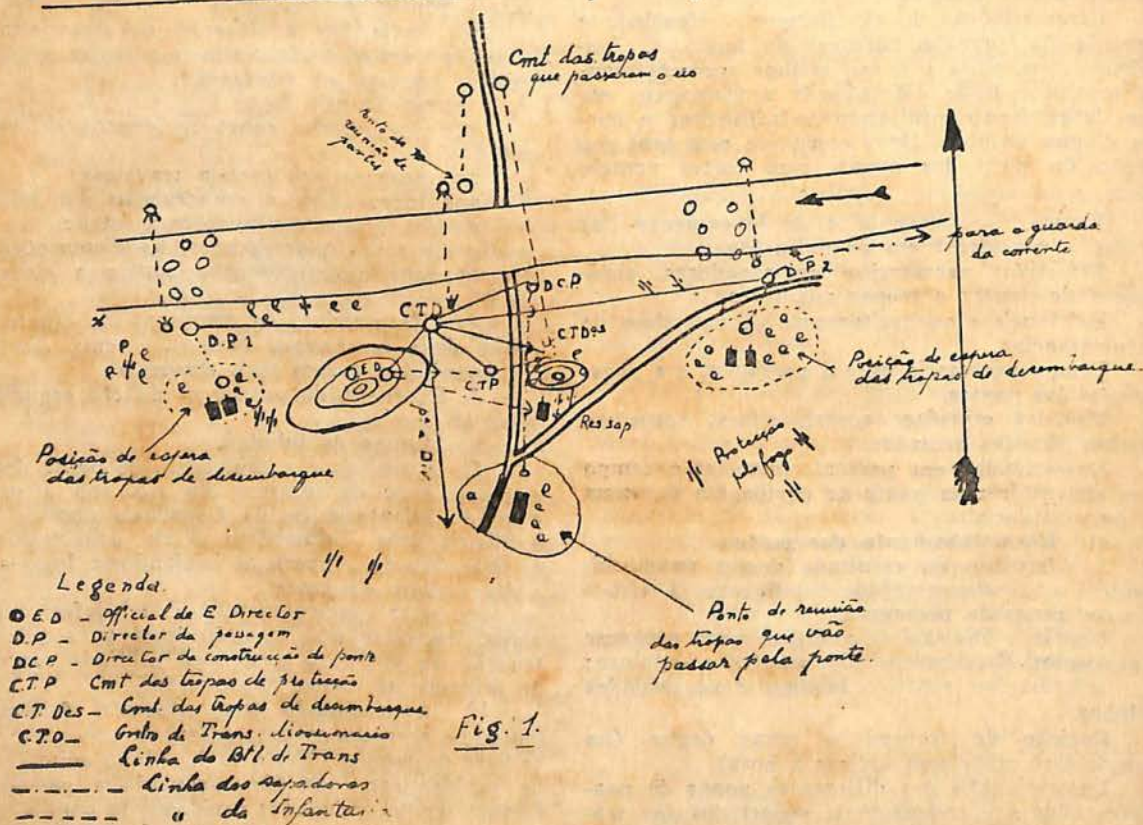 Cmt das tropas
que passaram o rio
Ponto de
reunião de
partes
para a guarda
da corrente
D.C.P
D.P.2
C.T.D
C.T.Des
D.P.1
O.E.D
C.T.P
Res sap
Posição de espera
das tropas de desembarque.
Posição de espera
das tropas de desembarque
Protecção
pelo fogo
a Div
Ponto de reunião
das tropas que vão
passar pela ponte.
Legenda.
O E.D - Official de E Director
D.P - Director da passagem
D C.P - Director da construcção da ponte
C.T.P Cmt das tropas de protecção
C.T. Des - Cmt. das tropas de desembarque
C.T.D - Centro de Trans. divisionario
Linha do Btl. de Trans
Linha dos sapadores
" da Infantaria
Fig. 1.